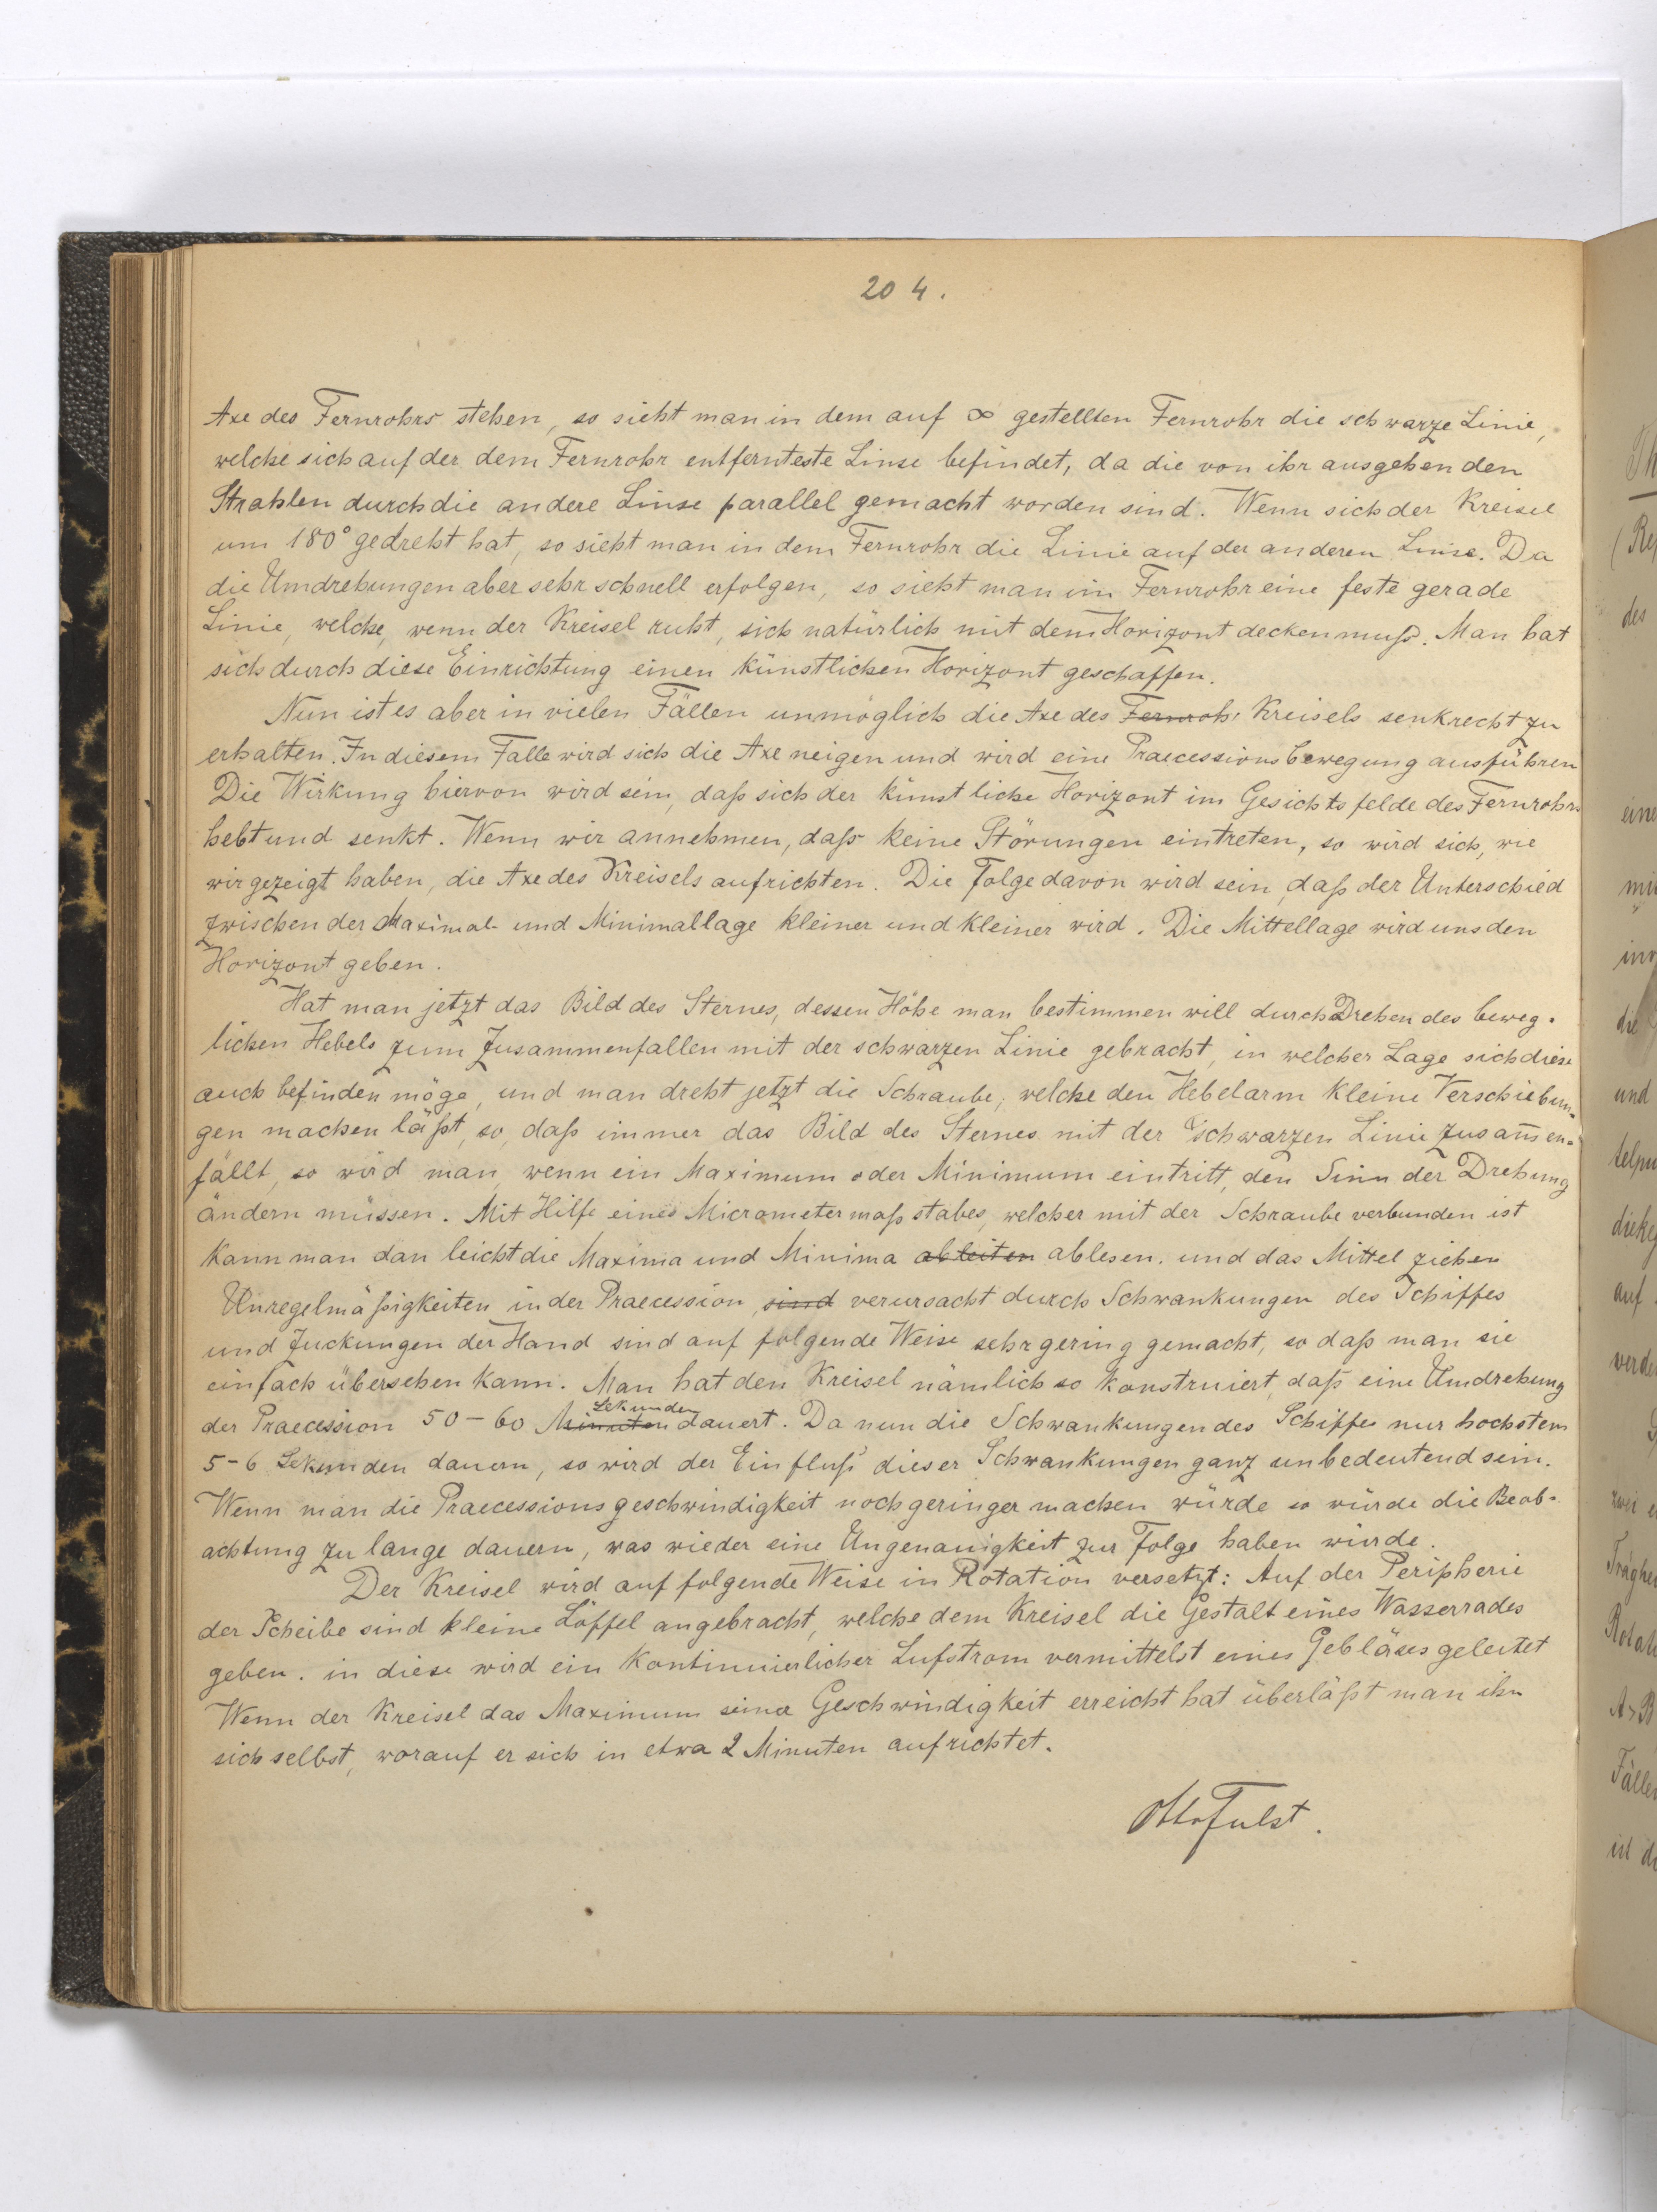 204.
Axe des Fernrohrs stehen, so sieht man in dem auf ∞ gestellten Fernrohr die schwarze Linie,
welche sich auf der dem Fernrohr entfernteste Linse befindet, da die von ihr ausgehenden
Strahlen durch die andere Linse parallel gemacht worden sind. Wenn sich der Kreisel
um 180° gedreht hat, so sieht man in dem Fernrohr die Linie auf der anderen Linse. Da
die Umdrehungen aber sehr schnell erfolgen, so sieht man im Fernrohr eine feste gerade
Linie, welche, wenn der Kreisel ruht, sich natürlich mit dem Horizont decken muß. Man hat
sich durch diese Einrichtung einen künstlichen Horizont geschaffen.
Nun ist es aber in vielen Fällen unmöglich die Axe des Fernrohr Kreisels senkrecht zu
erhalten. In diesem Falle wird sich die Axe neigen und wird eine Praecessionsbewegung ausführen
Die Wirkung hiervon wird sein, daß sich der künstliche Horizont im Gesichtsfelde des Fernrohrs
hebt und senkt. Wenn wir annehmen, daß keine Störungen eintreten, so wird sich, wie
wir gezeigt haben, die Axe des Kreisels aufrichten. Die Folge davon wird sein, daß der Unterschied
zwischen der Maximal- und Minimallage kleiner und kleiner wird. Die Mittellage wird uns den
Horizont geben.
Hat man jetzt das Bild des Sternes, dessen Höhe man bestimmen will durch Drehen des beweg-
lichen Hebels zum Zusammenfallen mit der schwarzen Linie gebracht, in welcher Lage sich diese
auch befinden möge, und man dreht jetzt die Schraube, welche den Hebelarm kleine Verschiebun-
gen machen läßt, so, daß immer das Bild des Sternes mit der schwarzen Linie zusam̅en=
fällt, so wird man, wenn ein Maximum oder Minimum eintritt, den Sinn der Drehung
ändern müssen. Mit Hilfe eines Micrometermaßstabes, welcher mit der Schraube verbunden ist
kann man dan leicht die Maxima und Minima ableiten ablesen. und das Mittel ziehen
Unregelmäßigkeiten in der Praecession, sind verursacht durch Schwankungen des Schiffes
und Zuckungen der Hand sind auf folgende Weise sehr gering gemacht, so daß man sie
einfach übersehen kann. Man hat den Kreisel nämlich so konstruiert, daß eine Umdrehung
der Praecession 50-60 Minuten Sekunden dauert. Da nun die Schwankungen des Schiffes nur hochstens
5-6 Sekunden dauern, so wird der Einfluß dieser Schwankungen ganz unbedeutend sein.
Wenn man die Praecessionsgeschwindigkeit noch geringer machen würde so würde die Beob-
achtung zu lange dauern, was wieder eine Ungenauigkeit zur Folge haben würde.
Der Kreisel wird auf folgende Weise in Rotation versetzt: Auf der Peripherie
der Scheibe sind kleine Löffel angebracht, welche dem Kreisel die Gestalt eines Wasserrades
geben. in diese wird ein kontinuierlicher Lufstrom vermittelst eines Gebläses geleitet
Wenn der Kreisel das Maximum seiner Geschwindigkeit erreicht hat überläßt man ihn
sich selbst, worauf er sich in etwa 2 Minuten aufrichtet.
Otto Fulst.
des
und
auf